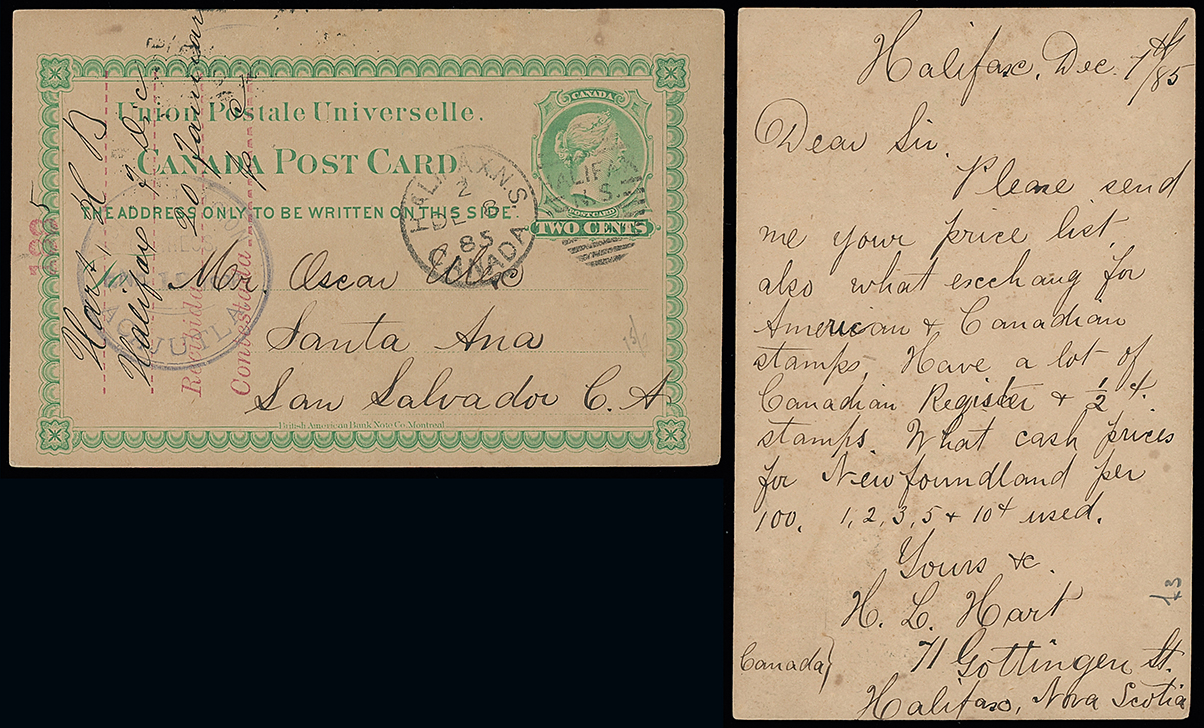 Union Postale Universelle.
CANADA POST CARD
THE ADDRESS ONLY TO BE WRITTEN ON THIS SIDE.
CANADA
POST CARD
TWO CENTS
HALIFAX.N.S.
2
DE 8
85
CANADA
HALIFAX
N.S.
Mr. Oscar
Santa Ana
San Salvador C. A
British American Bank Note Co. Montreal.
1885
Hart H
Halifax 8 Dic
20
Recibida
Contestada
ACAJUTLA
Halifax, Dec. 7th/85
Dear Sir.
Please send
me your price list,
also what exchang for
American & Canadian
stamps. Have a lot of
Canadian Register & ½ ¢.
stamps. What cash prices
for Newfoundland per
100. 1, 2, 3, 5 & 10¢ used.
Yours &c.
H. L. Hart
Canada} 71 Gottingen St.
Halifax, Nova Scotia